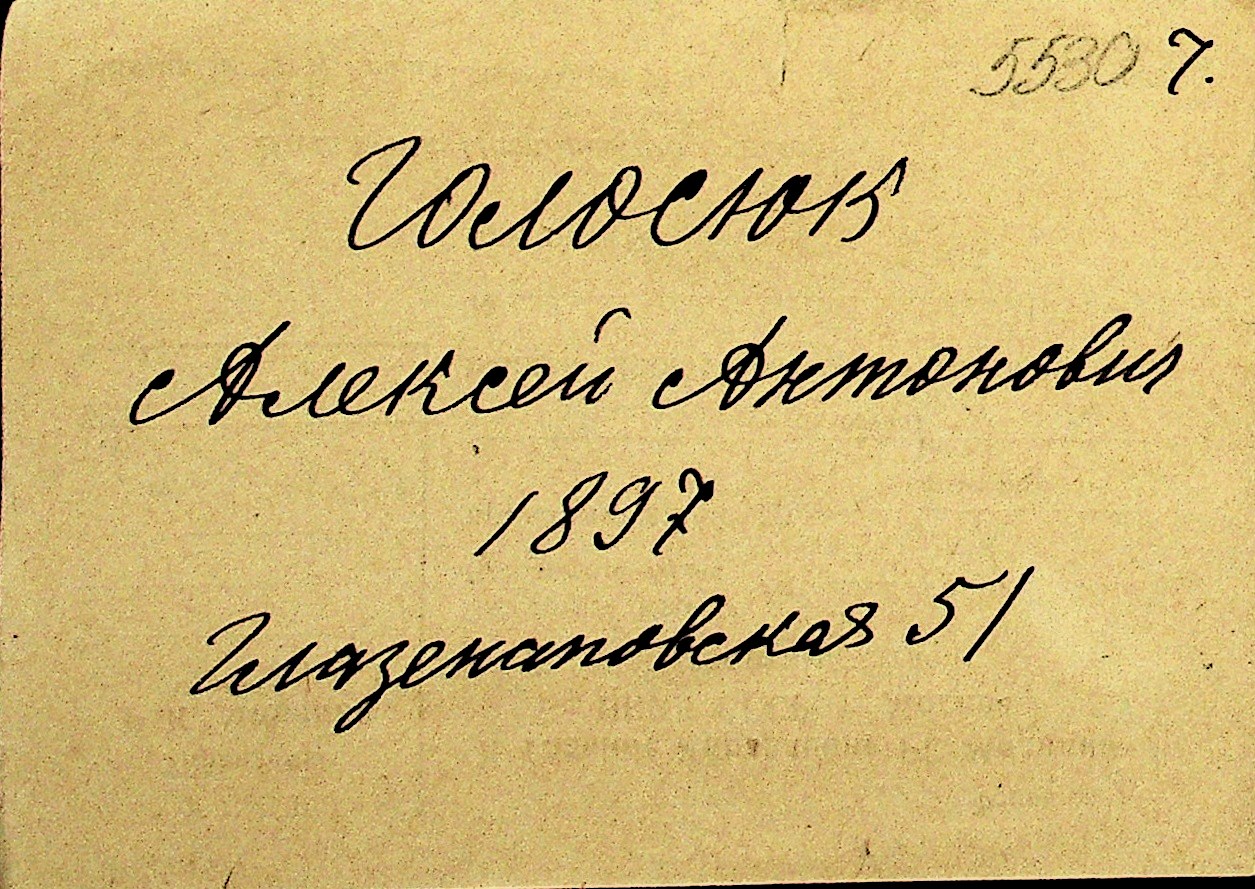 5530 7.
Голосюк
Алексей Антонович
1897
Глазенаповская 51